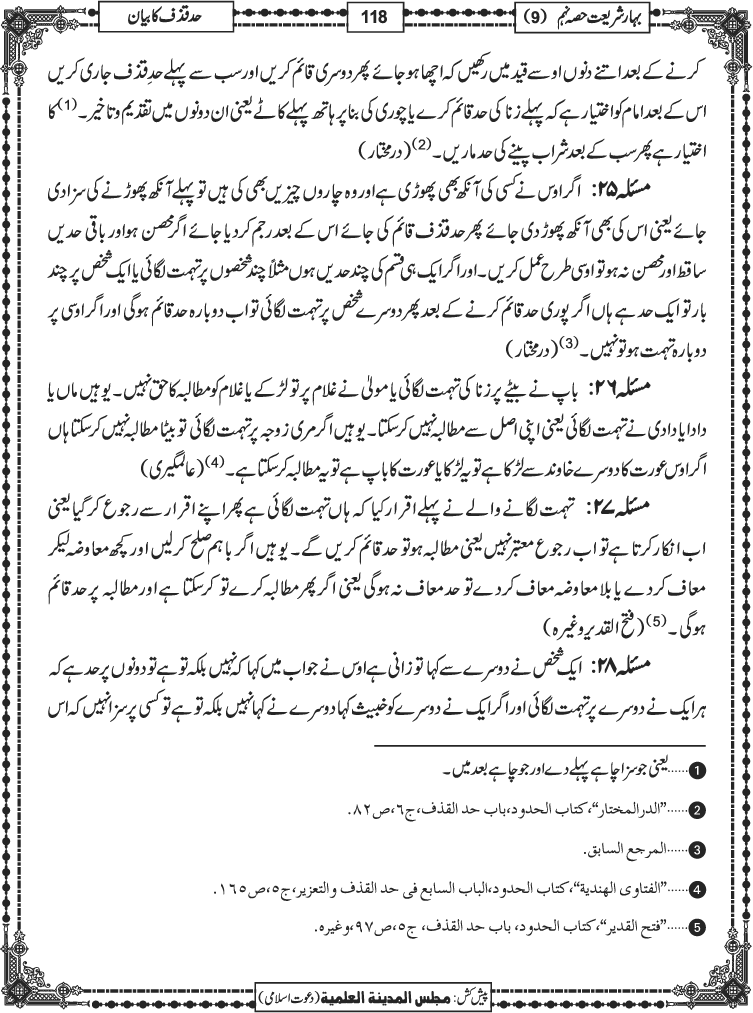 بہارِ شریعت حصہ نہم (9)
118
حد قذف کا بیان
کرنے کے بعد اتنے دنوں اوسے قید میں رکھیں کہ اچھا ہو جائے پھر دوسری قائم کریں اور سب سے پہلے حدِ قذف جاری کریں
اس کے بعد امام کو اختیار ہے کہ پہلے زنا کی حد قائم کرے یا چوری کی بنا پر ہاتھ پہلے کاٹے یعنی ان دونوں میں تقدیم و تاخیر۔(1) کا
اختیار ہے پھر سب کے بعد شراب پینے کی حد ماریں۔(2) (درمختار)
مسئلہ ۲۵: اگر اوس نے کسی کی آنکھ بھی پھوڑی ہے اور وہ چاروں چیزیں بھی کی ہیں تو پہلے آنکھ پھوڑنے کی سزا دی
جائے یعنی اس کی بھی آنکھ پھوڑ دی جائے پھر حد قذف قائم کی جائے اس کے بعد رجم کر دیا جائے اگر محصن ہو اور باقی حدیں
ساقط اور محصن نہ ہو تو اوسی طرح عمل کریں۔ اور اگر ایک ہی قسم کی چند حدیں ہوں مثلاً چند شخصوں پر تہمت لگائی یا ایک شخص پر چند
بار تو ایک حد ہے ہاں اگر پوری حد قائم کرنے کے بعد پھر دوسرے شخص پر تہمت لگائی تو اب دوبارہ حد قائم ہوگی اور اگر اوسی پر
دوبارہ تہمت ہو تو نہیں۔(3) (درمختار)
مسئلہ ۲۶: باپ نے بیٹے پر زنا کی تہمت لگائی یا مولیٰ نے غلام پر تو لڑکے یا غلام کو مطالبہ کا حق نہیں۔ یوہیں ماں یا
دادا یا دادی نے تہمت لگائی یعنی اپنی اصل سے مطالبہ نہیں کر سکتا۔ یوہیں اگر مری زوجہ پر تہمت لگائی تو بیٹا مطالبہ نہیں کر سکتا ہاں
اگر اوس عورت کا دوسرے خاوند سے لڑکا ہے تو یہ لڑکا یا عورت کا باپ ہے تو یہ مطالبہ کر سکتا ہے۔(4) (عالمگیری)
مسئلہ ۲۷: تہمت لگانے والے نے پہلے اقرار کیا کہ ہاں تہمت لگائی ہے پھر اپنے اقرار سے رجوع کر گیا یعنی
اب انکار کرتا ہے تو اب رجوع معتبر نہیں یعنی مطالبہ ہو تو حد قائم کریں گے۔ یوہیں اگر باہم صلح کر لیں اور کچھ معاوضہ لیکر
معاف کر دے یا بلا معاوضہ معاف کر دے تو حد معاف نہ ہوگی یعنی اگر پھر مطالبہ کرے تو کر سکتا ہے اور مطالبہ پر حد قائم
ہوگی۔(5) (فتح القدیر وغیرہ)
مسئلہ ۲۸: ایک شخص نے دوسرے سے کہا تو زانی ہے اوس نے جواب میں کہا کہ نہیں بلکہ تو ہے تو دونوں پر حد ہے کہ
ہر ایک نے دوسرے پر تہمت لگائی اور اگر ایک نے دوسرے کو خبیث کہا دوسرے نے کہا نہیں بلکہ تو ہے تو کسی پر سزا نہیں کہ اس
1 ......یعنی جو سزا چاہے پہلے دے اور جو چاہے بعد میں۔
2 ......”الدرالمختار“،کتاب الحدود،باب حد القذف،ج٦،ص٨٢.
3 ......المرجع السابق.
4 ......”الفتاوی الھندیة“،کتاب الحدود،الباب السابع فی حد القذف والتعزیر،ج٥،ص١٦٥.
5 ......”فتح القدیر“،کتاب الحدود، باب حد القذف، ج٥،ص٩٧،وغیرہ.
پیش کش: مجلس المدینة العلمیة (دعوت اسلامی)